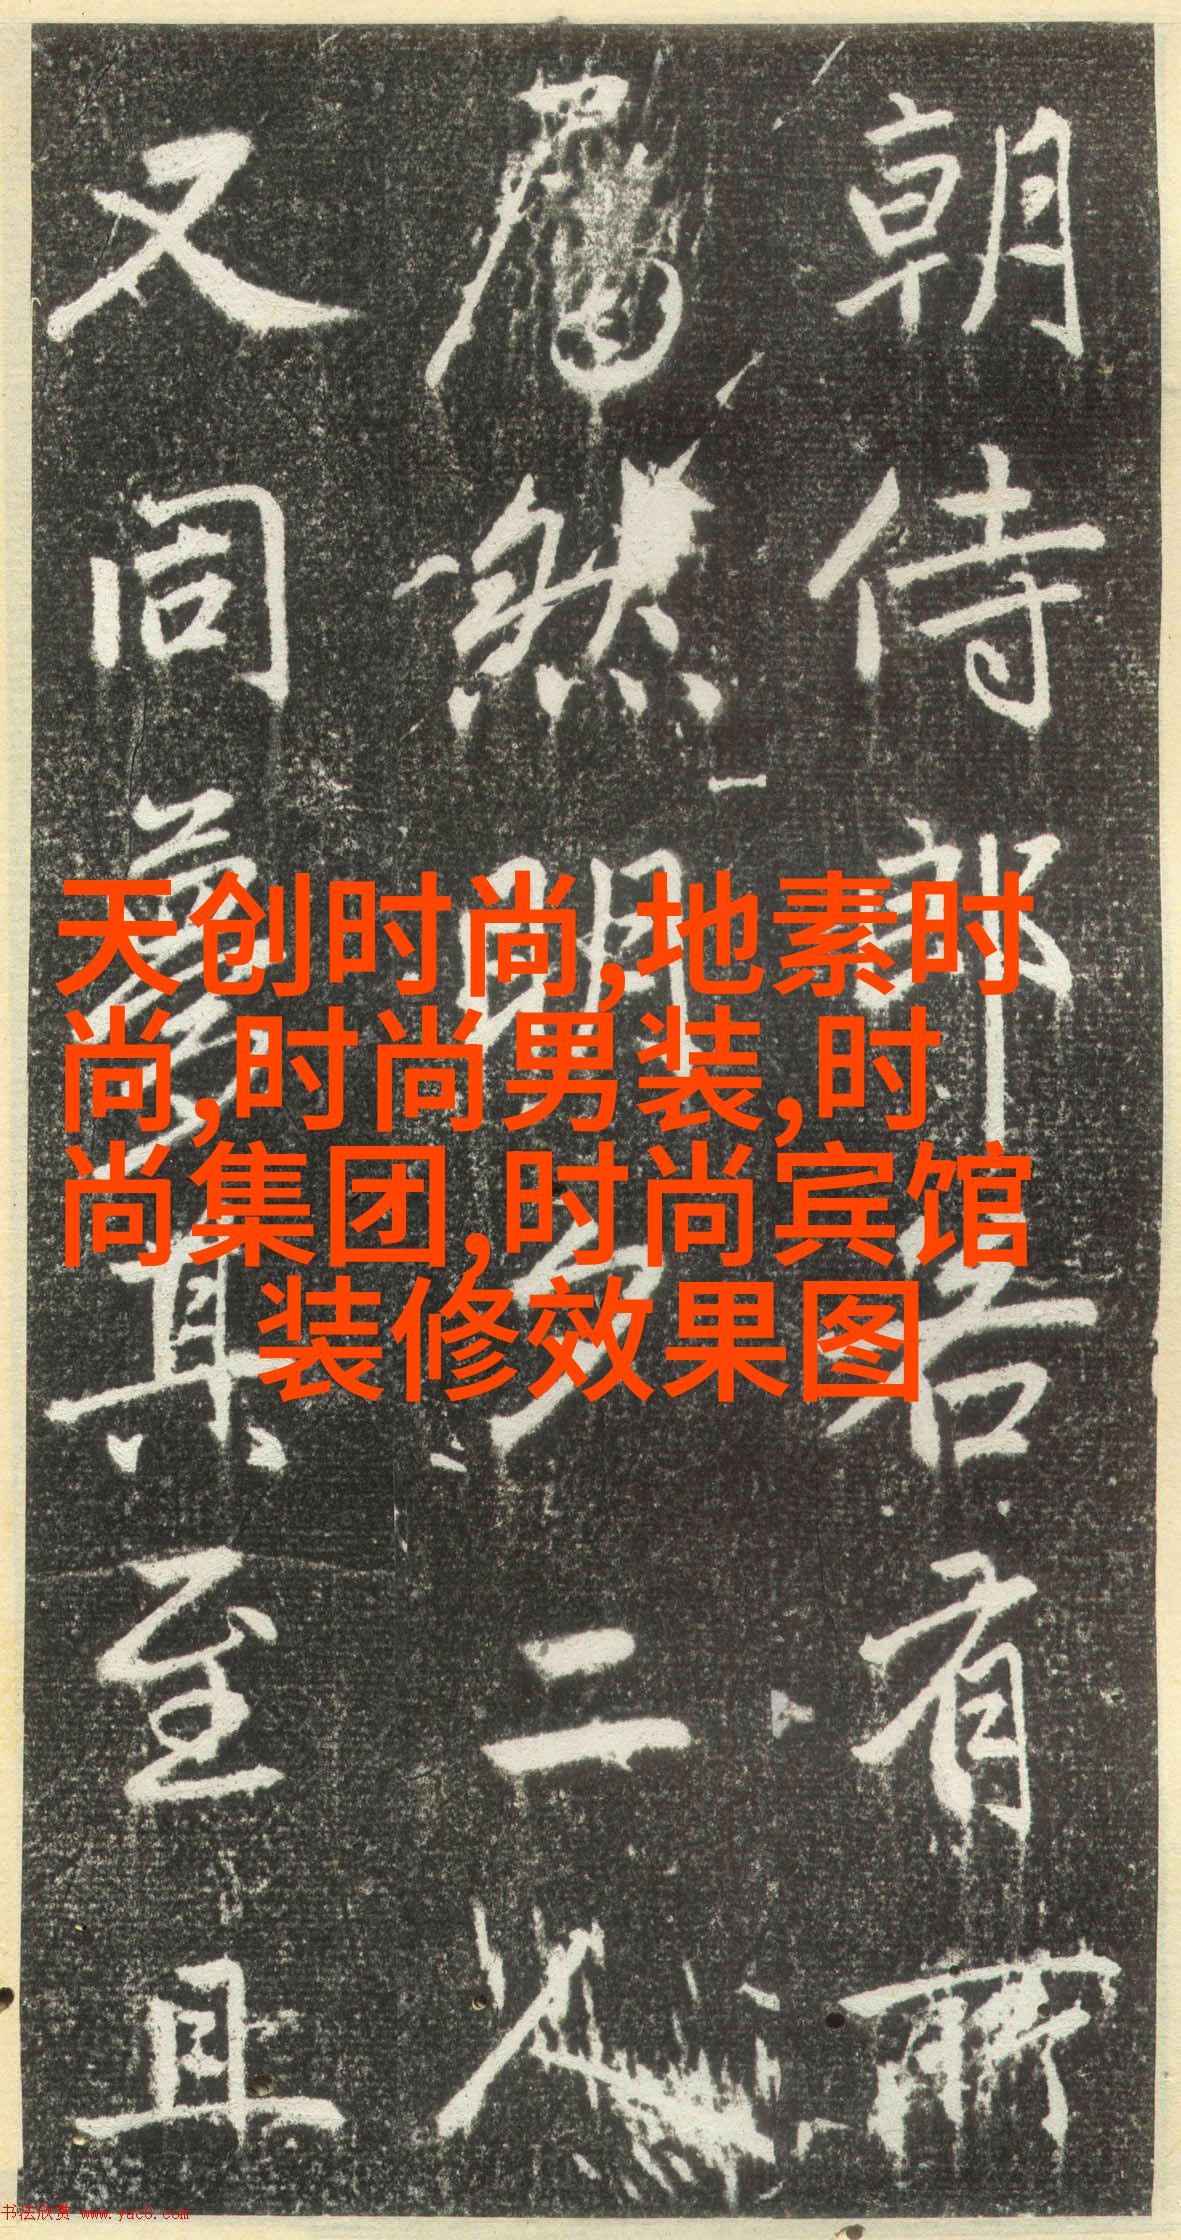 朝侍郎若有所
然明夕二人
又同其至且
天创时尚,地素时
尚,时尚男装,时
尚集团,时尚宾馆
装修效果图
书法欣赏 www.yac8.com